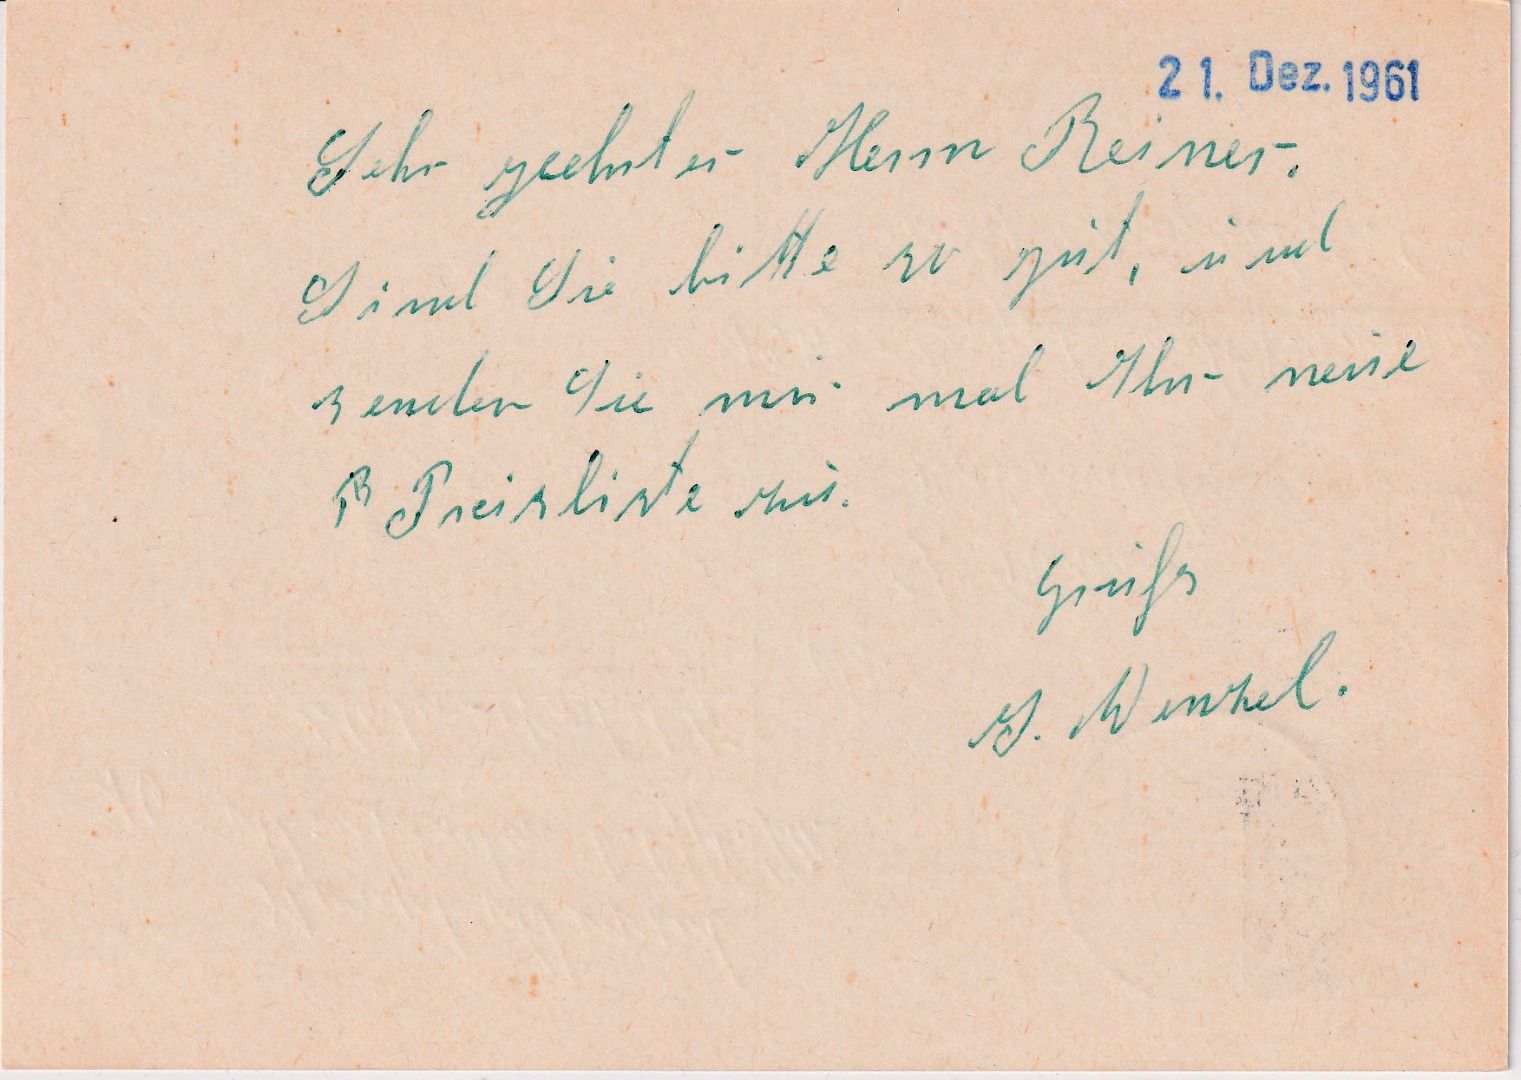 21. Dez. 1961
Sehr geehrter Herrn Reiner.
Sind Sie bitte so gut, und
senden Sie mir mal Ihr neue
Preisliste zu.
Gruß
J. Wenkel.